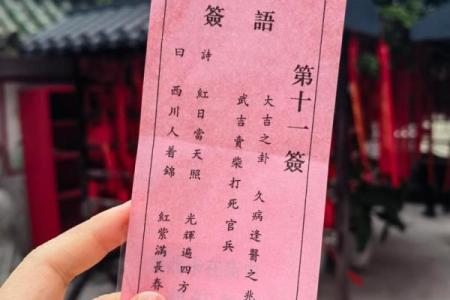 語簽
第十一簽
大吉之卦 久病逢醫之兆
武吉賣柴打死官兵
詩曰
紅日當天照 光輝遍四方
西川人着錦 紅紫滿長春